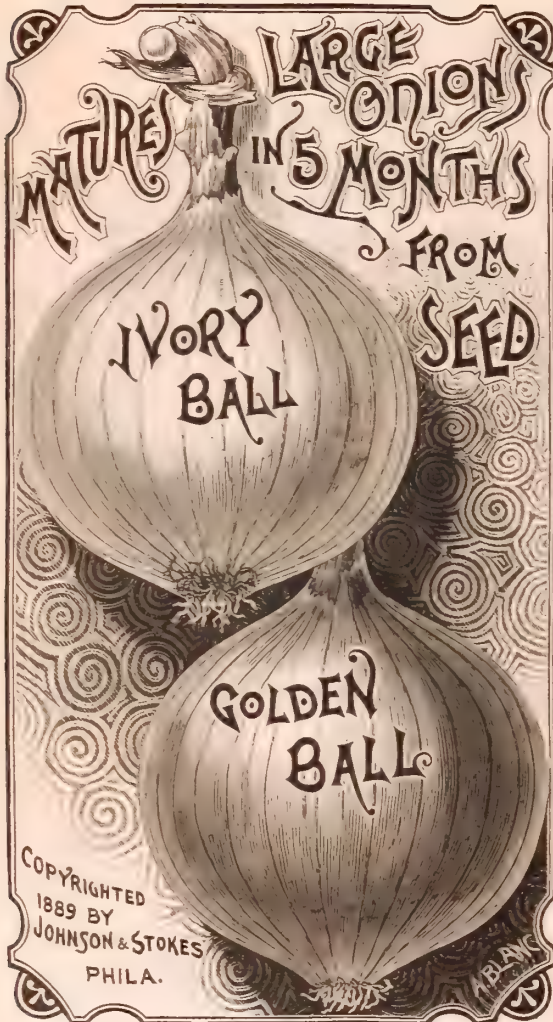 MATURES
LARGE
ONIONS
IN 5 MONTHS
FROM
SEED
IVORY
BALL
GOLDEN
BALL
COPYRIGHTED
1889 BY
JOHNSON & STOKES
PHILA.
A.BLANC